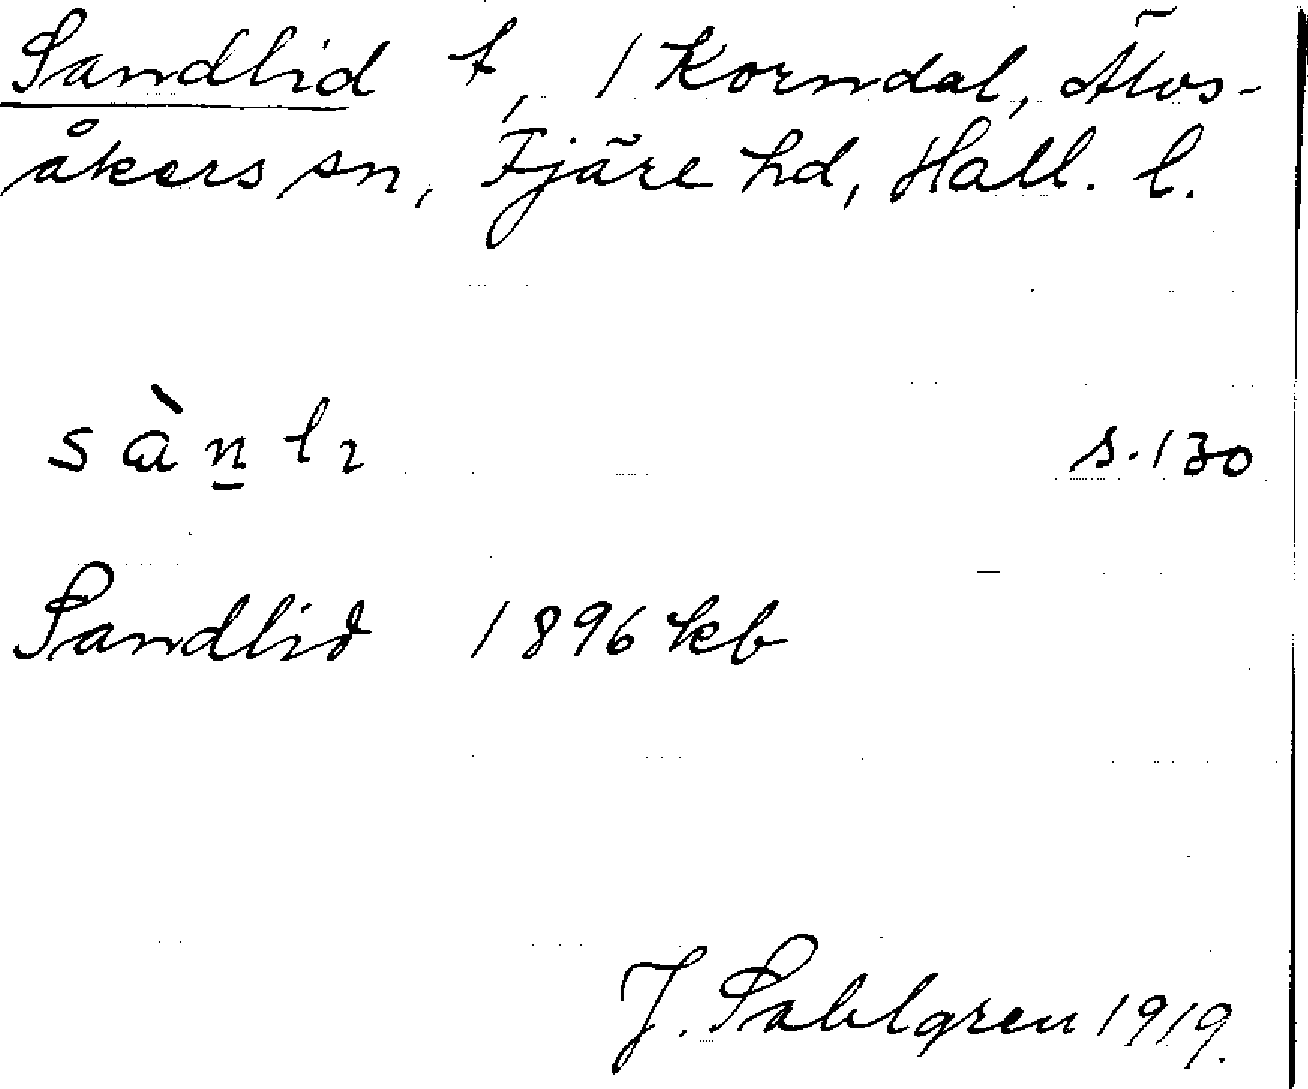 Sandlid t, 1 Korndal, Älvs-
åkers sn, Fjäre hd, Hall. l.
sàn̲ lı s. 130
Sandlid 1896 kb
J. Sahlgren 1919.